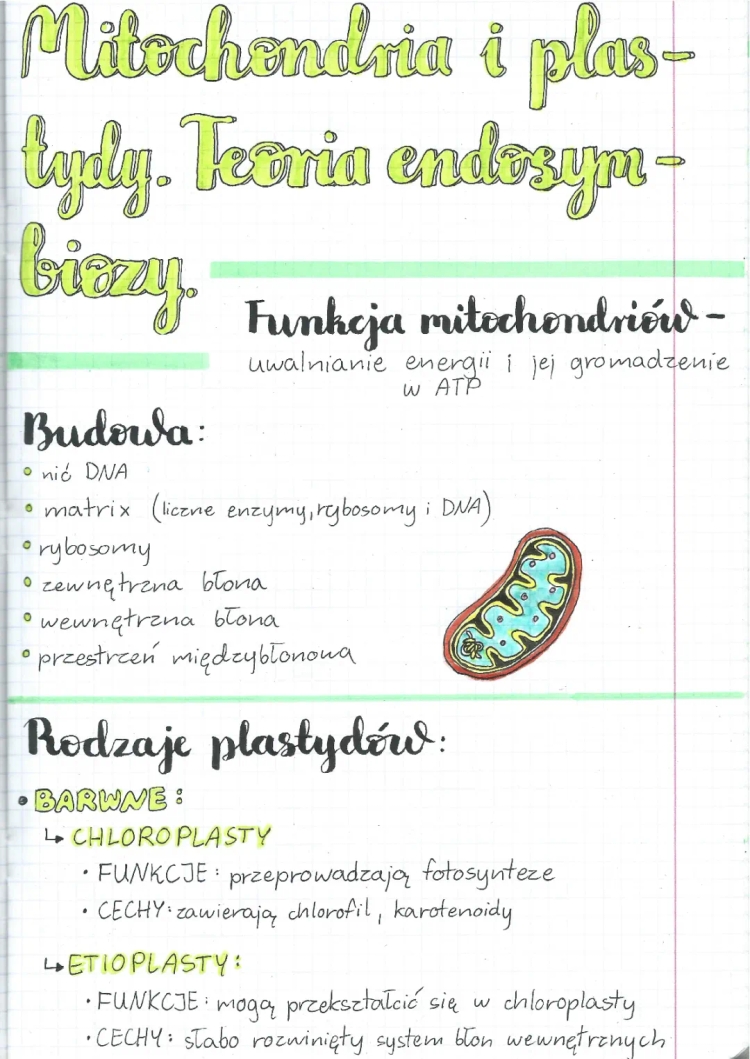 Mitochondria i plas-
tydy. Teoria endosym-
biozy.
Funkcja mitochondriów-
uwalnianie energii i jej gromadzenie
w ATP
Budowa:
• nić DNA
• matrix (liczne enzymy, rybosomy i DNA)
• rybosomy
• zewnętrzna błona
• wewnętrzna błona
• przestrzeń międzybłonowa
Rodzaje plastydów:
• BARWNE:
↳ CHLOROPLASTY
• FUNKCJE: przeprowadzają fotosynteze
• CECHY: zawierają chlorofil, karotenoidy
↳ ETIOPLASTY:
• FUNKCJE: mogą przekształcić się w chloroplasty
• CECHY: słabo rozwinięty system błon wewnętrznych